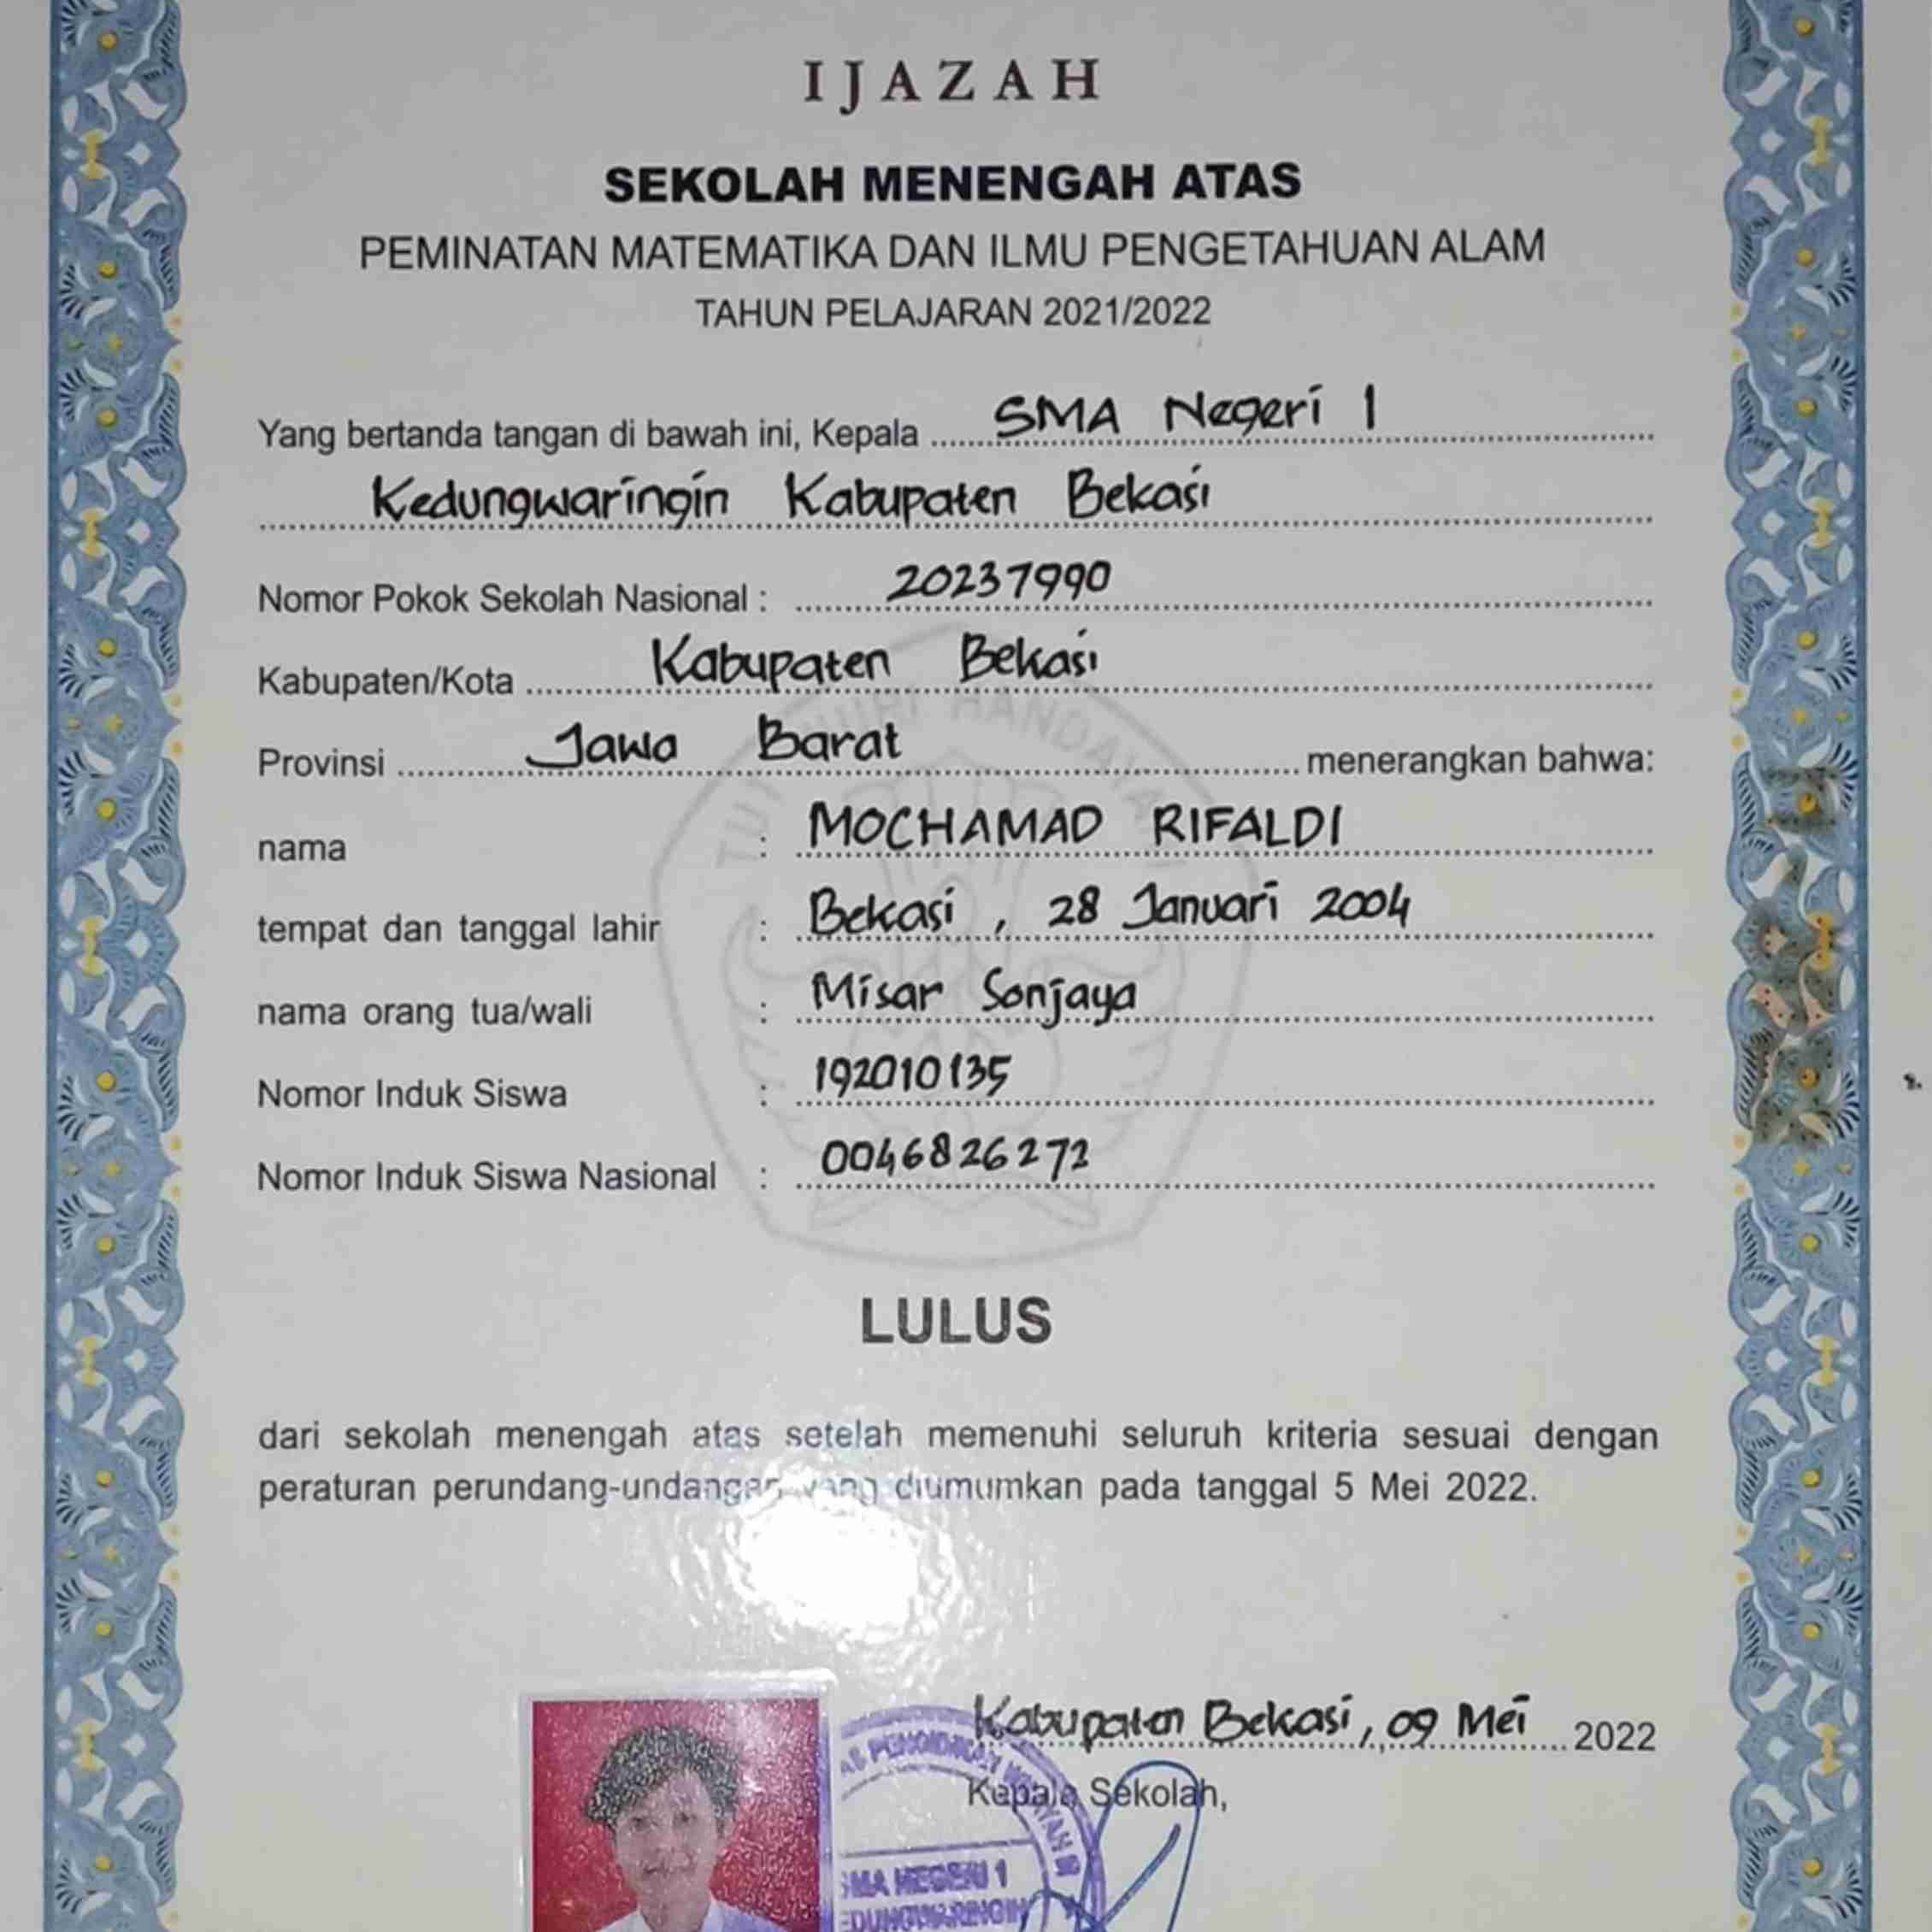 IJAZAH
SEKOLAH MENENGAH ATAS
PEMINATAN MATEMATIKA DAN ILMU PENGETAHUAN ALAM
TAHUN PELAJARAN 2021/2022
Yang bertanda tangan di bawah ini, Kepala SMA Negeri 1
Kedungwaringin Kabupaten Bekasi
Nomor Pokok Sekolah Nasional : 20237990
Kabupaten/Kota Kabupaten Bekasi
Provinsi Jawa Barat menerangkan bahwa:
nama : MOCHAMAD RIFALDI
tempat dan tanggal lahir : Bekasi, 28 Januari 2004
nama orang tua/wali : Misar Sonjaya
Nomor Induk Siswa : 192010135
Nomor Induk Siswa Nasional : 0046826272
TUT HANDAYANI
LULUS
dari sekolah menengah atas setelah memenuhi seluruh kriteria sesuai dengan
peraturan perundang-undangan yang diumumkan pada tanggal 5 Mei 2022.
Kabupaten Bekasi, 09 Mei 2022
Kepala Sekolah,
PENDIDIKAN WILAYAH
SMA NEGERI 1
KEDUNGWARINGIN